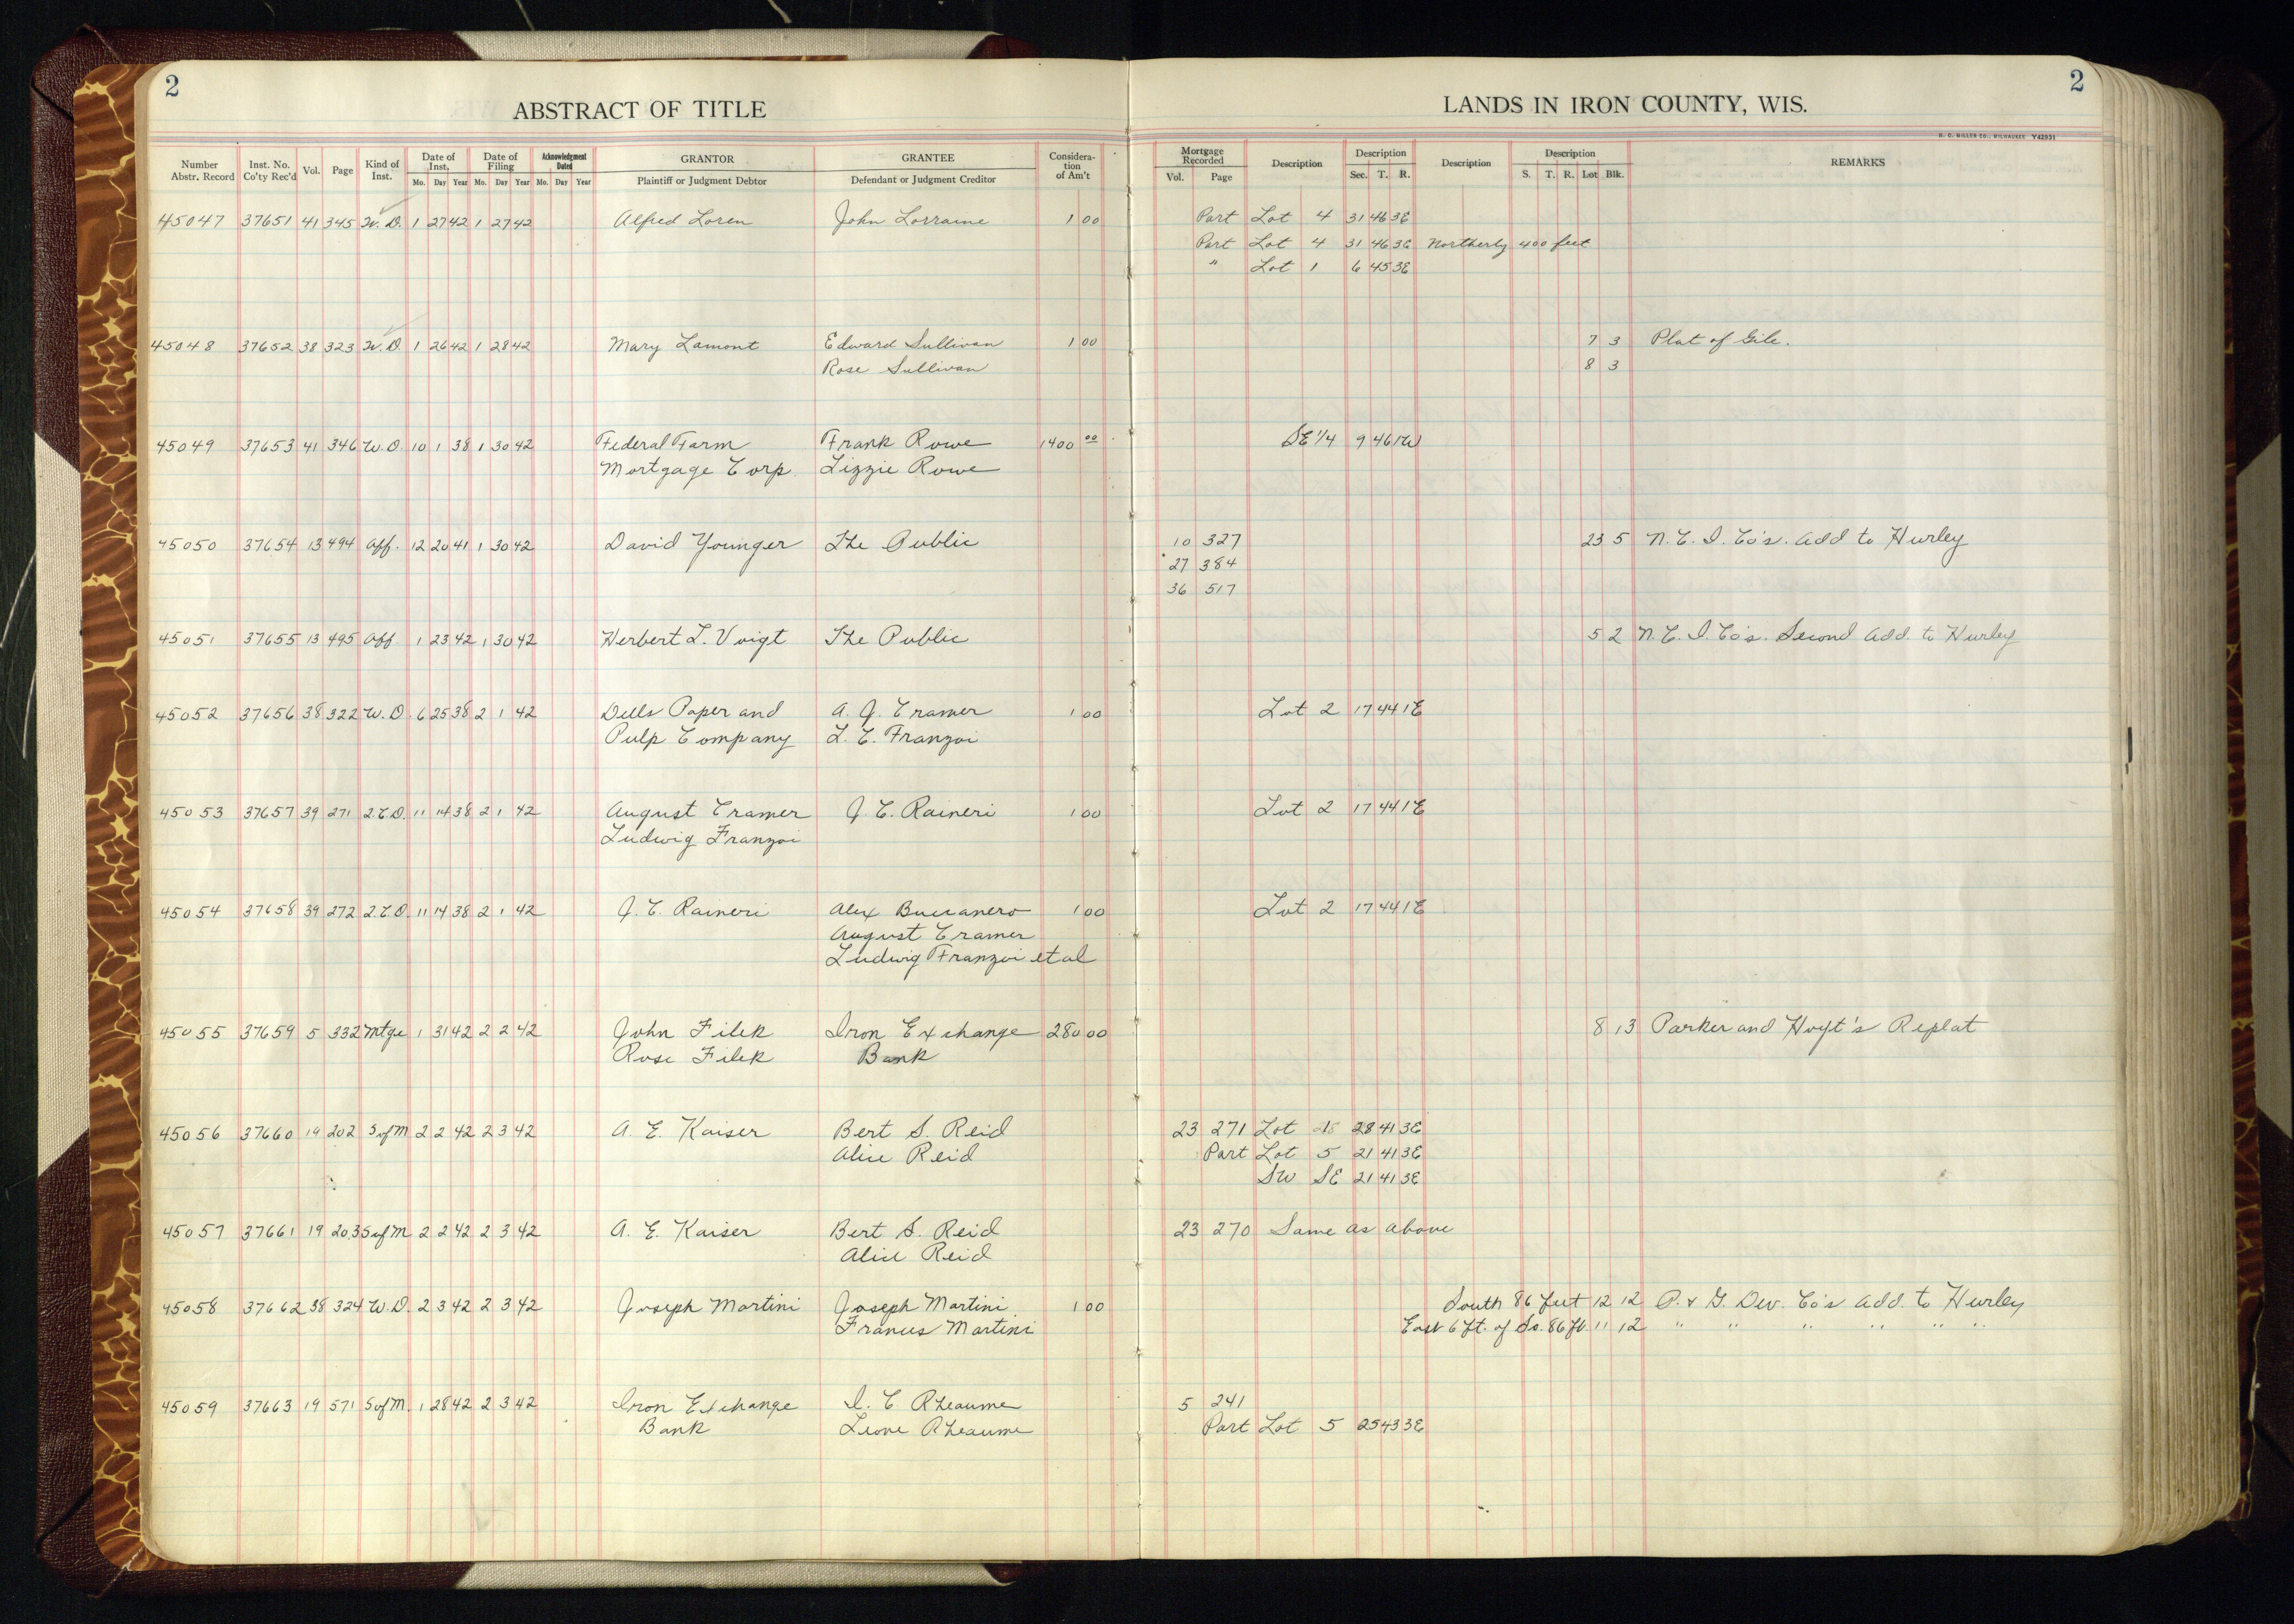 2
ABSTRACT OF TITLE
LANDS IN IRON COUNTY, WIS.
2
H. C. MILLER CO., MILWAUKEE Y42931
Number Abstr. Record Inst. No. Co'ty Rec'd Vol. Page Kind of Inst. Date of Inst. Mo. Day Year Date of Filing Mo. Day Year Acknowledgment Dated Mo. Day Year GRANTOR Plaintiff or Judgment Debtor GRANTEE Defendant or Judgment Creditor Considera-tion of Am't Mortgage Recorded Vol. Page Description Description Sec. T. R. Description Description S. T. R. Lot Blk. REMARKS
45047 37651 41 345 W. D. 1 27 42 1 27 42 Alfred Loren John Lorraine 1 00 Part Lot 4 31 46 3E
Part Lot 4 31 46 3E Northerly 400 feet
" Lot 1 6 45 3E
45048 37652 38 323 W. D. 1 26 42 1 28 42 Mary Lamont Edward Sullivan 1 00 7 3 Plat of Gile.
Rose Sullivan 8 3
45049 37653 41 346 W. D. 10 1 38 1 30 42 Federal Farm Frank Rowe 1400 00 SE 1/4 9 46 1W
Mortgage Corp. Lizzie Rowe
45050 37654 13 494 Aff. 12 20 41 1 30 42 David Younger The Public 10 327 23 5 N. C. I. Co's. Add to Hurley
27 384
36 517
45051 37655 13 495 Aff. 1 23 42 1 30 42 Herbert L. Voigt The Public 5 2 N. C. I. Co's. Second Add. to Hurley
45052 37656 38 322 W. D. 6 25 38 2 1 42 Dells Paper and A. J. Cramer 1 00 Lot 2 17 44 1E
Pulp Company L. C. Franzoi
45053 37657 39 271 2. C. D. 11 14 38 2 1 42 August Cramer J. C. Raineri 1 00 Lot 2 17 44 1E
Ludwig Franzoi
45054 37658 39 272 2. C. D. 11 14 38 2 1 42 J. C. Raineri Alex Buccanero 1 00 Lot 2 17 44 1E
August Cramer
Ludwig Franzoi et al
45055 37659 5 332 Mtge 1 31 42 2 2 42 John Filek Iron Exchange 280 00 8 13 Parker and Hoyt's Replat
Rose Filek Bank
45056 37660 19 202 S of M 2 2 42 2 3 42 A. E. Kaiser Bert S. Reid 23 271 Lot 28 41 3E
Alice Reid Part Lot 5 21 41 3E
SW SE 21 41 3E
45057 37661 19 203 S of M 2 2 42 2 3 42 A. E. Kaiser Bert S. Reid 23 270 Same as above
Alice Reid
45058 37662 38 324 W. D. 2 3 42 2 3 42 Joseph Martini Joseph Martini 1 00 South 86 feet 12 12 P. & G. Dev. Co's Add. to Hurley
Frances Martini East 6 ft. of So. 86 ft. 11 12 " " " " " "
45059 37663 19 571 S of M. 1 28 42 2 3 42 Iron Exchange I. C Rheaume 5 241
Bank Leone Rheaume Part Lot 5 25 43 3E